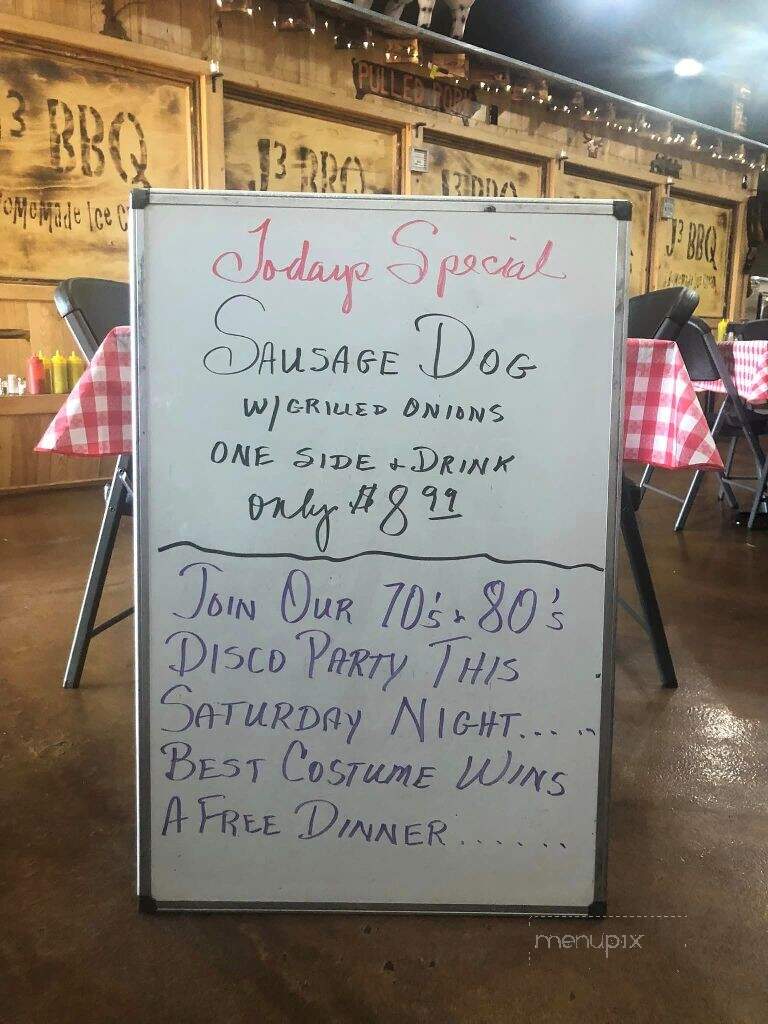 PULLED PORK
J3 BBQ
Homemade Ice C
J3 BBQ
J3 BBQ
J3 BBQ
Todays Special
SAUSAGE DOG
W/GRILLED ONIONS
ONE SIDE + DRINK
only $8 99
JOIN OUR 70's + 80's
DISCO PARTY THIS
SATURDAY NIGHT.....
BEST COSTUME WINS
A FREE DINNER......
menupix